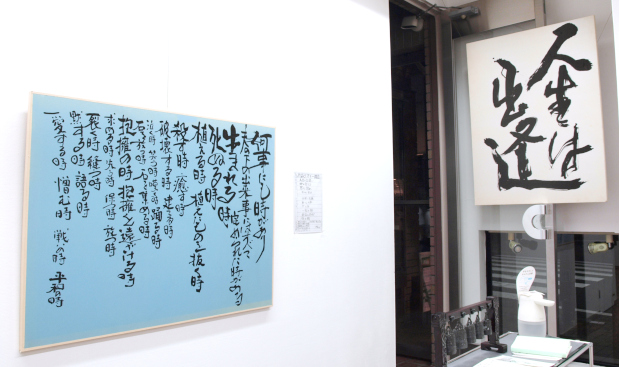 何事にも時があり
天の下の出来事にはすべて
定められた時がある
生まれる時
死ぬる時
植える時 植えたものを抜く時
殺す時 癒す時
破壊する時 建てる時
泣く時 笑う時 嘆く時 踊る時
石を放つ時 石を集める時
抱擁の時 抱擁を遠ざける時
求める時 失う時 保つ時 放つ時
裂く時 縫う時
黙する時 語る時
愛する時 憎む時 戦いの時 平和の時
人生は
出逢